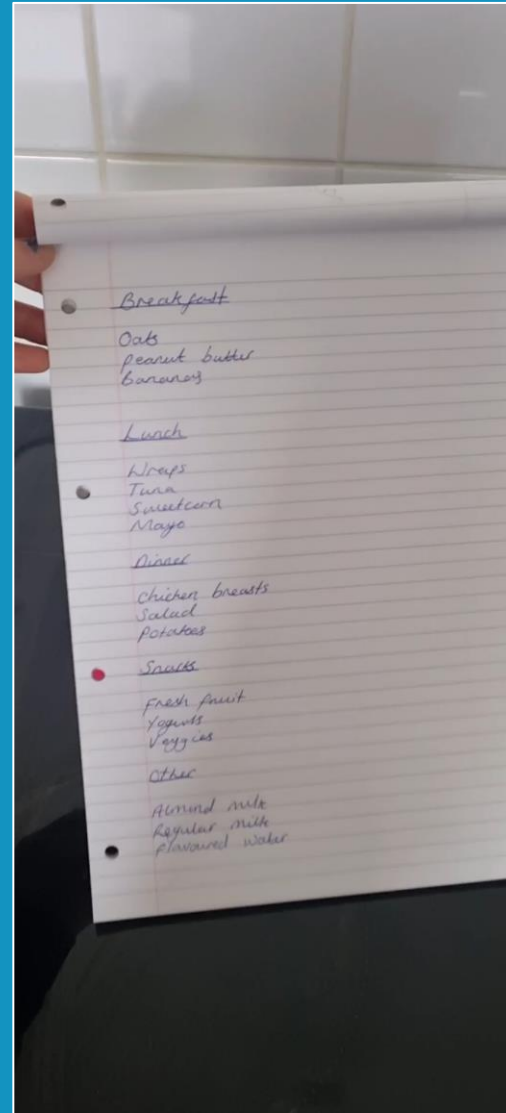 Breakfast
Oats
peanut butter
Bananas
Lunch
Wraps
Tuna
Sweetcorn
Mayo
Dinner
Chicken breasts
Salad
Potatoes
Snacks
Fresh fruit
Yogurts
Veggies
Other
Almond milk
Regular milk
flavoured water